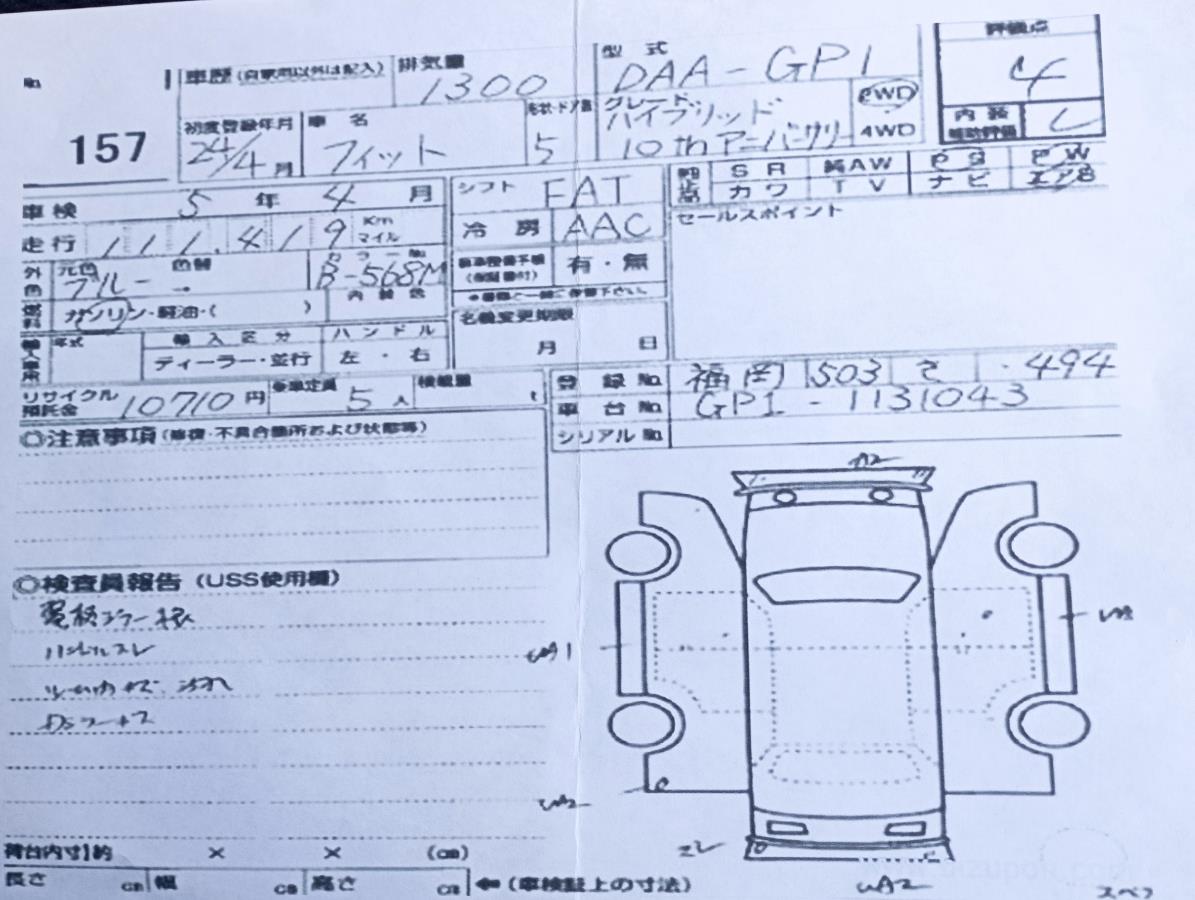 No
157
車歴 (自家用以外は記入)
排気量
1300
型式
DAA-GP1
評価点
4
初度登録年月
24/4月
車名
フィット
形状・ドア数
5
グレード
ハイブリッド
10thアニバーサリー
2WD
4WD
内装
補助評価
C
車検 5年4月
走行 111,419 Km
マイル
シフト FAT
冷房 AAC
SR 純AW PS PW
カワ TV ナビ エアB
セールスポイント
外色
元色 色替
ブルー →
カラーNo
B-568M
内装色
燃料 ガソリン・軽油・( )
有・無
名義変更期限
月 日
年式
輸入区分
ディーラー・並行
ハンドル
左・右
リサイクル預託金 10710円
乗車定員 5人
積載量 t
登録No 福岡 503 さ ・494
車台No GP1-1131043
シリアルNo
◎注意事項 (修復・不具合箇所および状態等)
◎検査員報告 (USS使用欄)
ハンドルスレ
A2
UA2
荷台内寸 約 × × (cm)
長さ cm 幅 cm 高さ cm ← (車検証上の寸法)